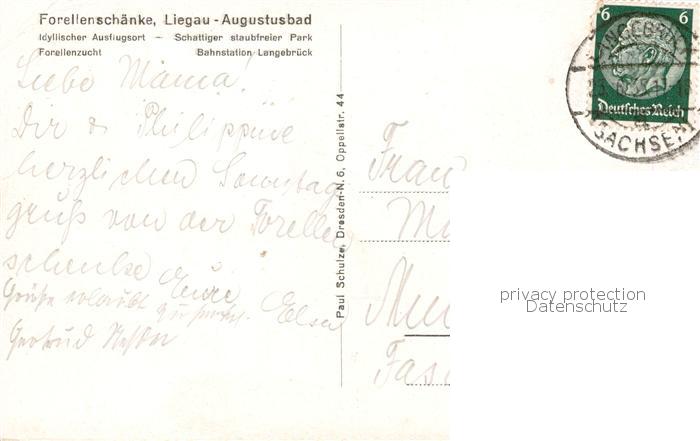 Forellenschänke, Liegau - Augustusbad
Idyllischer Ausflugsort – Schattiger staubfreier Park
Forellenzucht Bahnstation Langebrück
Liebe Mama!
Dir & Philippine
herzlichen Sonntags
gruß von der Forellen
schenke Eure
Grüße erlaubt
Elsa
Gertrud
Paul Schulze, Dresden-N. 6, Oppellstr. 44
Frau
6 6
Deutsches Reich
SACHSEN
privacy protection
Datenschutz